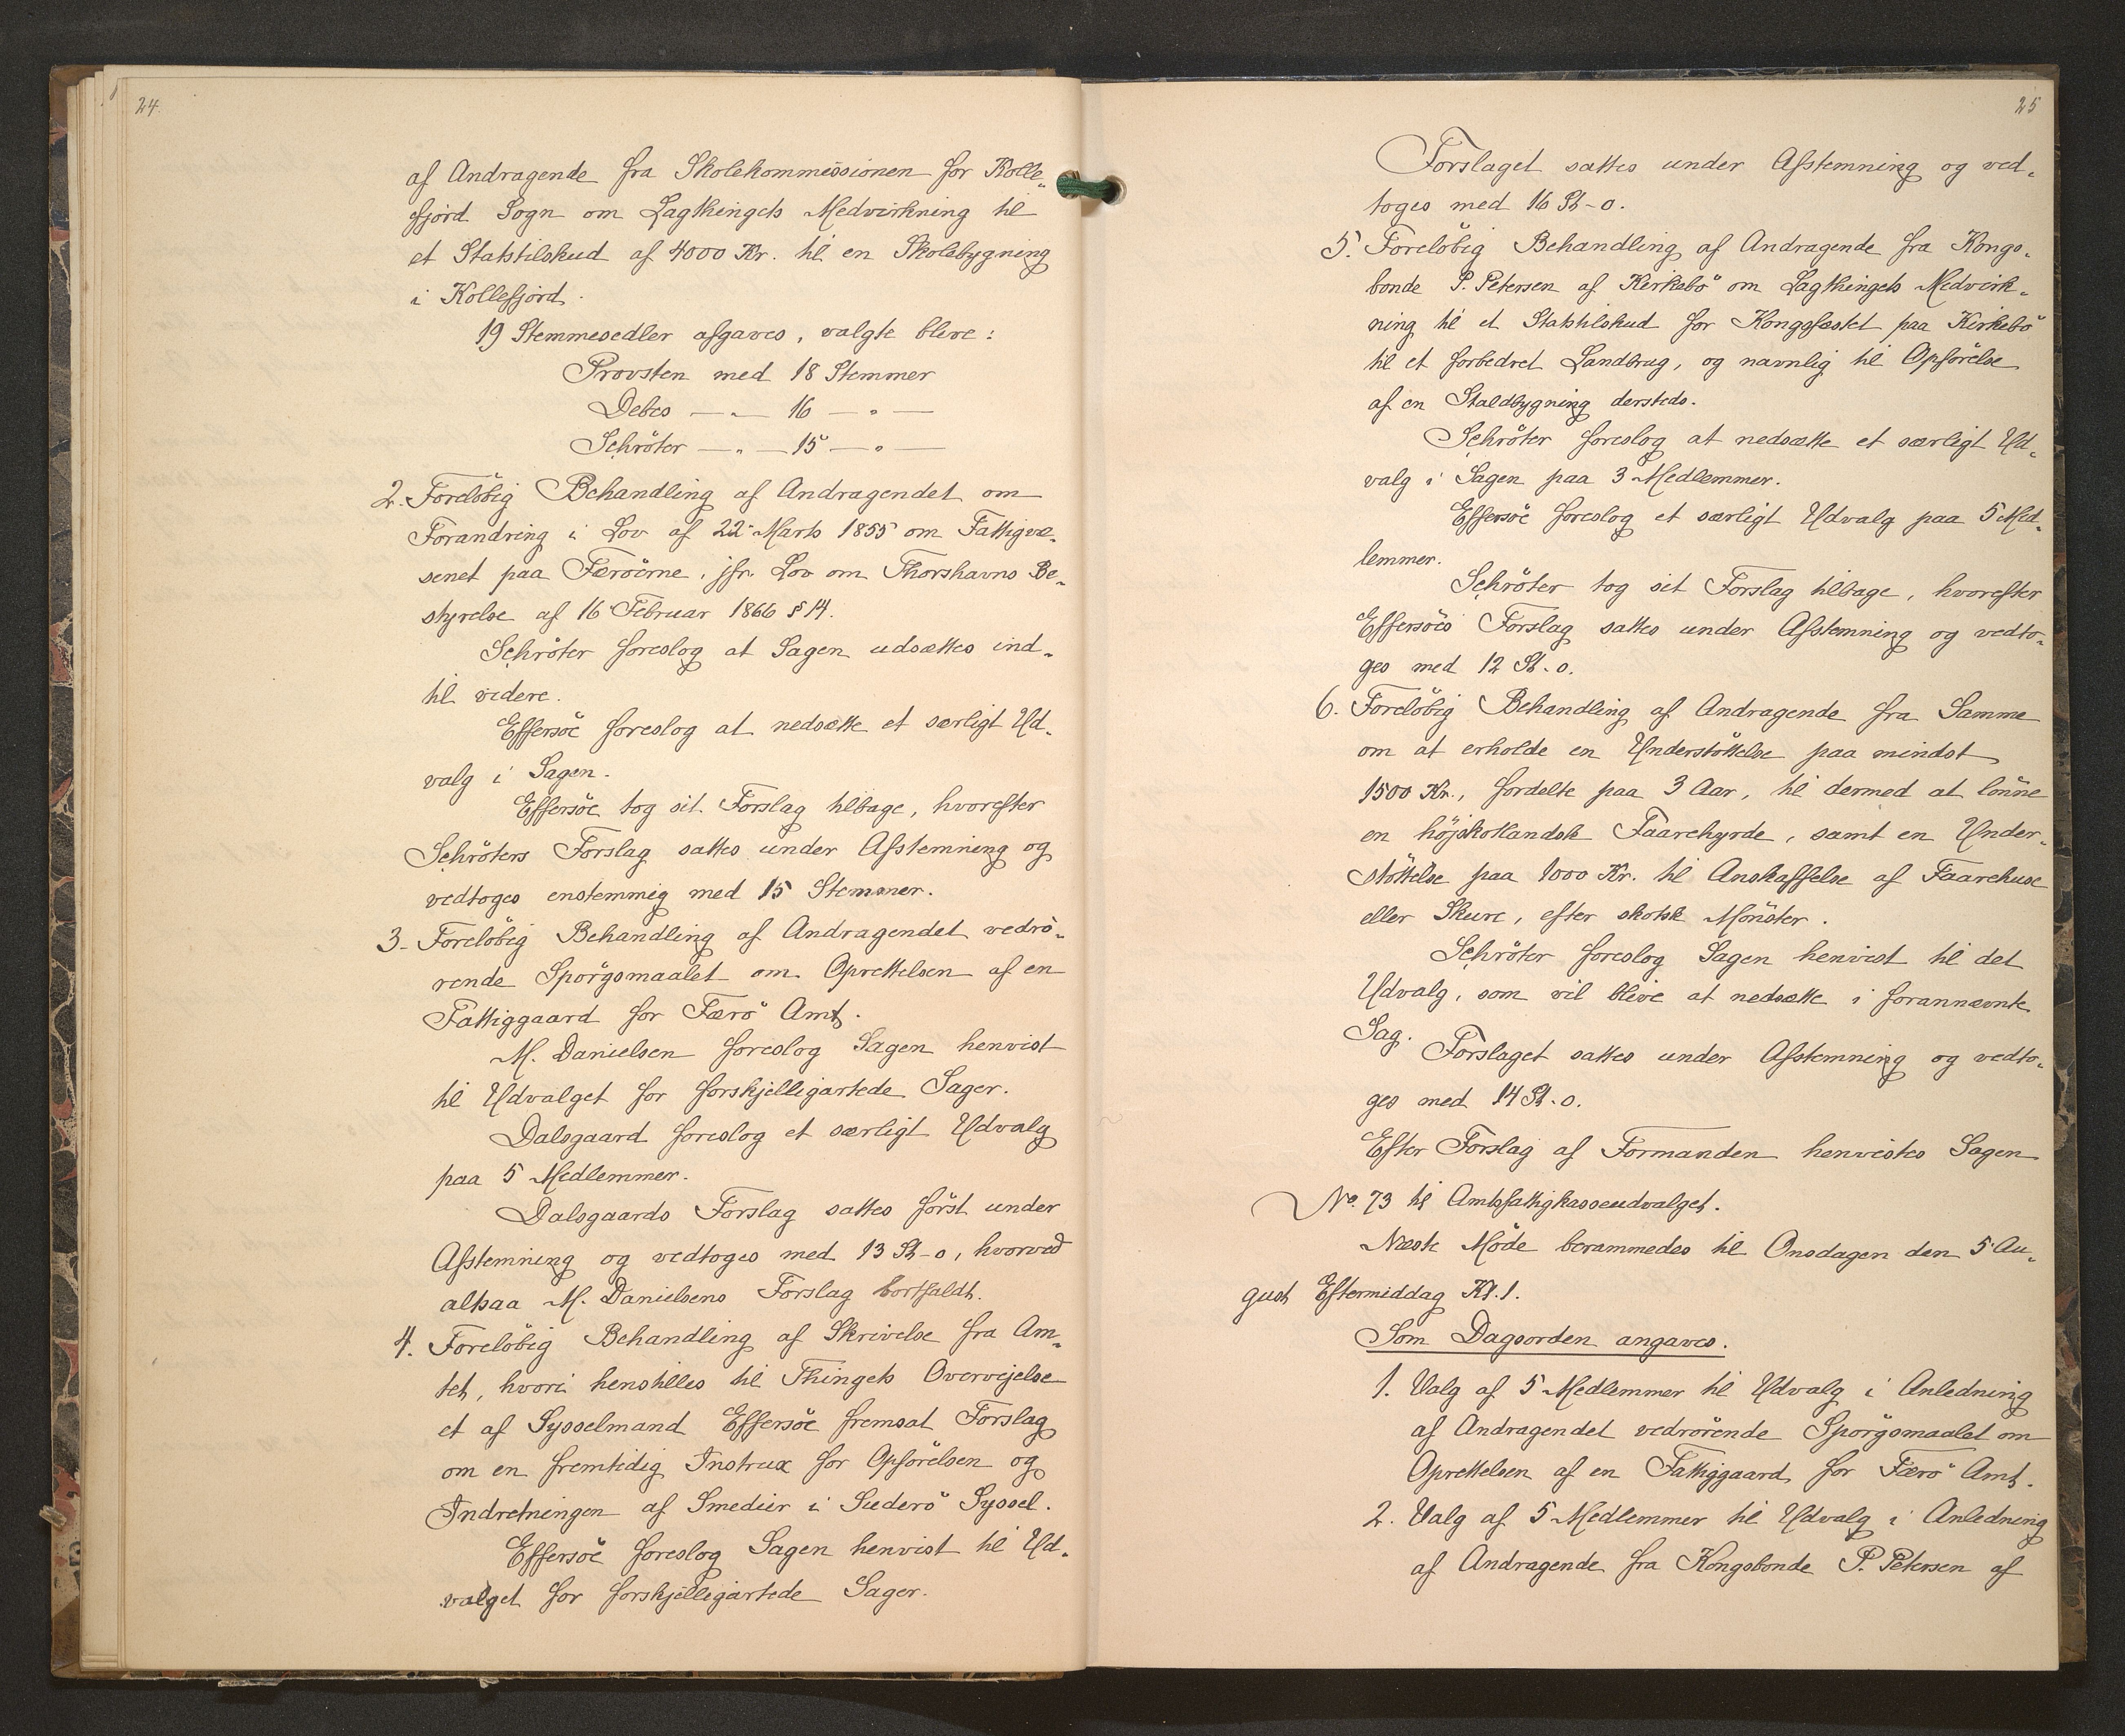 24.
af Andragende fra Skolekommissionen for Kolle-
fjord Sogn om Lagthingets Medvirkning til
et Statstilskud af 4000 Kr. til en Skolebygning
i Kollefjord.
19 Stemmesedler afgaves, valgte bleve:
Provsten med 18 Stemmer
Debes — " — 16 — " —
Schröter — " — 15 — " —
2. Foreløbig Behandling af Andragendet om
Forandring i Lov af 22 Marts 1855 om Fattigvæ-
senet paa Færöerne, jfr. Lov om Thorshavns Be-
styrelse af 16 Februar 1866 § 14.
Schröter foreslog at Sagen udsættes ind-
til videre.
Effersöe foreslog at nedsætte et særligt Ud-
valg i Sagen.
Effersöe tog sit Forslag tilbage, hvorefter
Schröters Forslag sattes under Afstemning og
vedtoges enstemmig med 15 Stemmer.
3. Foreløbig Behandling af Andragendet vedrö-
rende Spörgsmaalet om Oprettelsen af en
Fattiggaard for Færö Amt.
M. Danielsen foreslog Sagen henvist
til Udvalget for forskjelligartede Sager.
Dalsgaard foreslog et særligt Udvalg
paa 5 Medlemmer.
Dalsgaards Forslag sattes först under
Afstemning og vedtoges med 13 St-0, hvorved
altsaa M. Danielsens Forslag bortfaldt.
4. Foreløbig Behandling af Skrivelse fra Am-
tet, hvori henstilles til Thingets Overvejelse
et af Sysselmand Effersöe fremsat Forslag
om en fremtidig Instrux for Opförelsen og
Indretningen af Smedier i Suderö Syssel.
Effersöe foreslog Sagen henvist til Ud-
valget for forskjelligartede Sager.
25
Forslaget sattes under Afstemning og ved-
toges med 16 St-0.
5. Foreløbig Behandling af Andragende fra Kongs-
bonde P. Petersen af Kirkebö om Lagthingets Medvirk-
ning til et Statstilskud for Kongsfæstet paa Kirkebö
til et forbedret Landbrug, og navnlig til Opförelse
af en Staldbygning dersteds.
Schröter foreslog at nedsætte et særligt Ud-
valg i Sagen paa 3 Medlemmer.
Effersöe foreslog et særligt Udvalg paa 5 Med-
lemmer.
Schröter tog sit Forslag tilbage, hvorefter
Effersöes Forslag sattes under Afstemning og vedto-
ges med 12 St-0.
6. Foreløbig Behandling af Andragende fra Samme
om at erholde en Understöttelse paa mindst
1500 Kr., fordelte paa 3 Aar, til dermed at lönne
en höjskotlandsk Faarehyrde, samt en Under-
stöttelse paa 1000 Kr. til Anskaffelse af Faarehuse
eller Skure, efter skotsk Mönster.
Schröter foreslog Sagen henvist til det
Udvalg, som vil blive at nedsætte i forannævnte
Sag.
Forslaget sattes under Afstemning og vedto-
ges med 14 St-0.
Efter Forslag af Formanden henvistes Sagen
No. 73 til Amtsfattigkasseudvalget.
Næste Möde berammedes til Onsdagen den 5 Au-
gust Eftermiddag Kl. 1.
Som Dagsorden angaves.
1. Valg af 5 Medlemmer til Udvalg i Anledning
af Andragendet vedrörende Spörgsmaalet om
Oprettelsen af en Fattiggaard for Færö Amt.
2. Valg af 5 Medlemmer til Udvalg i Anledning
af Andragende fra Kongsbonde P. Petersen af